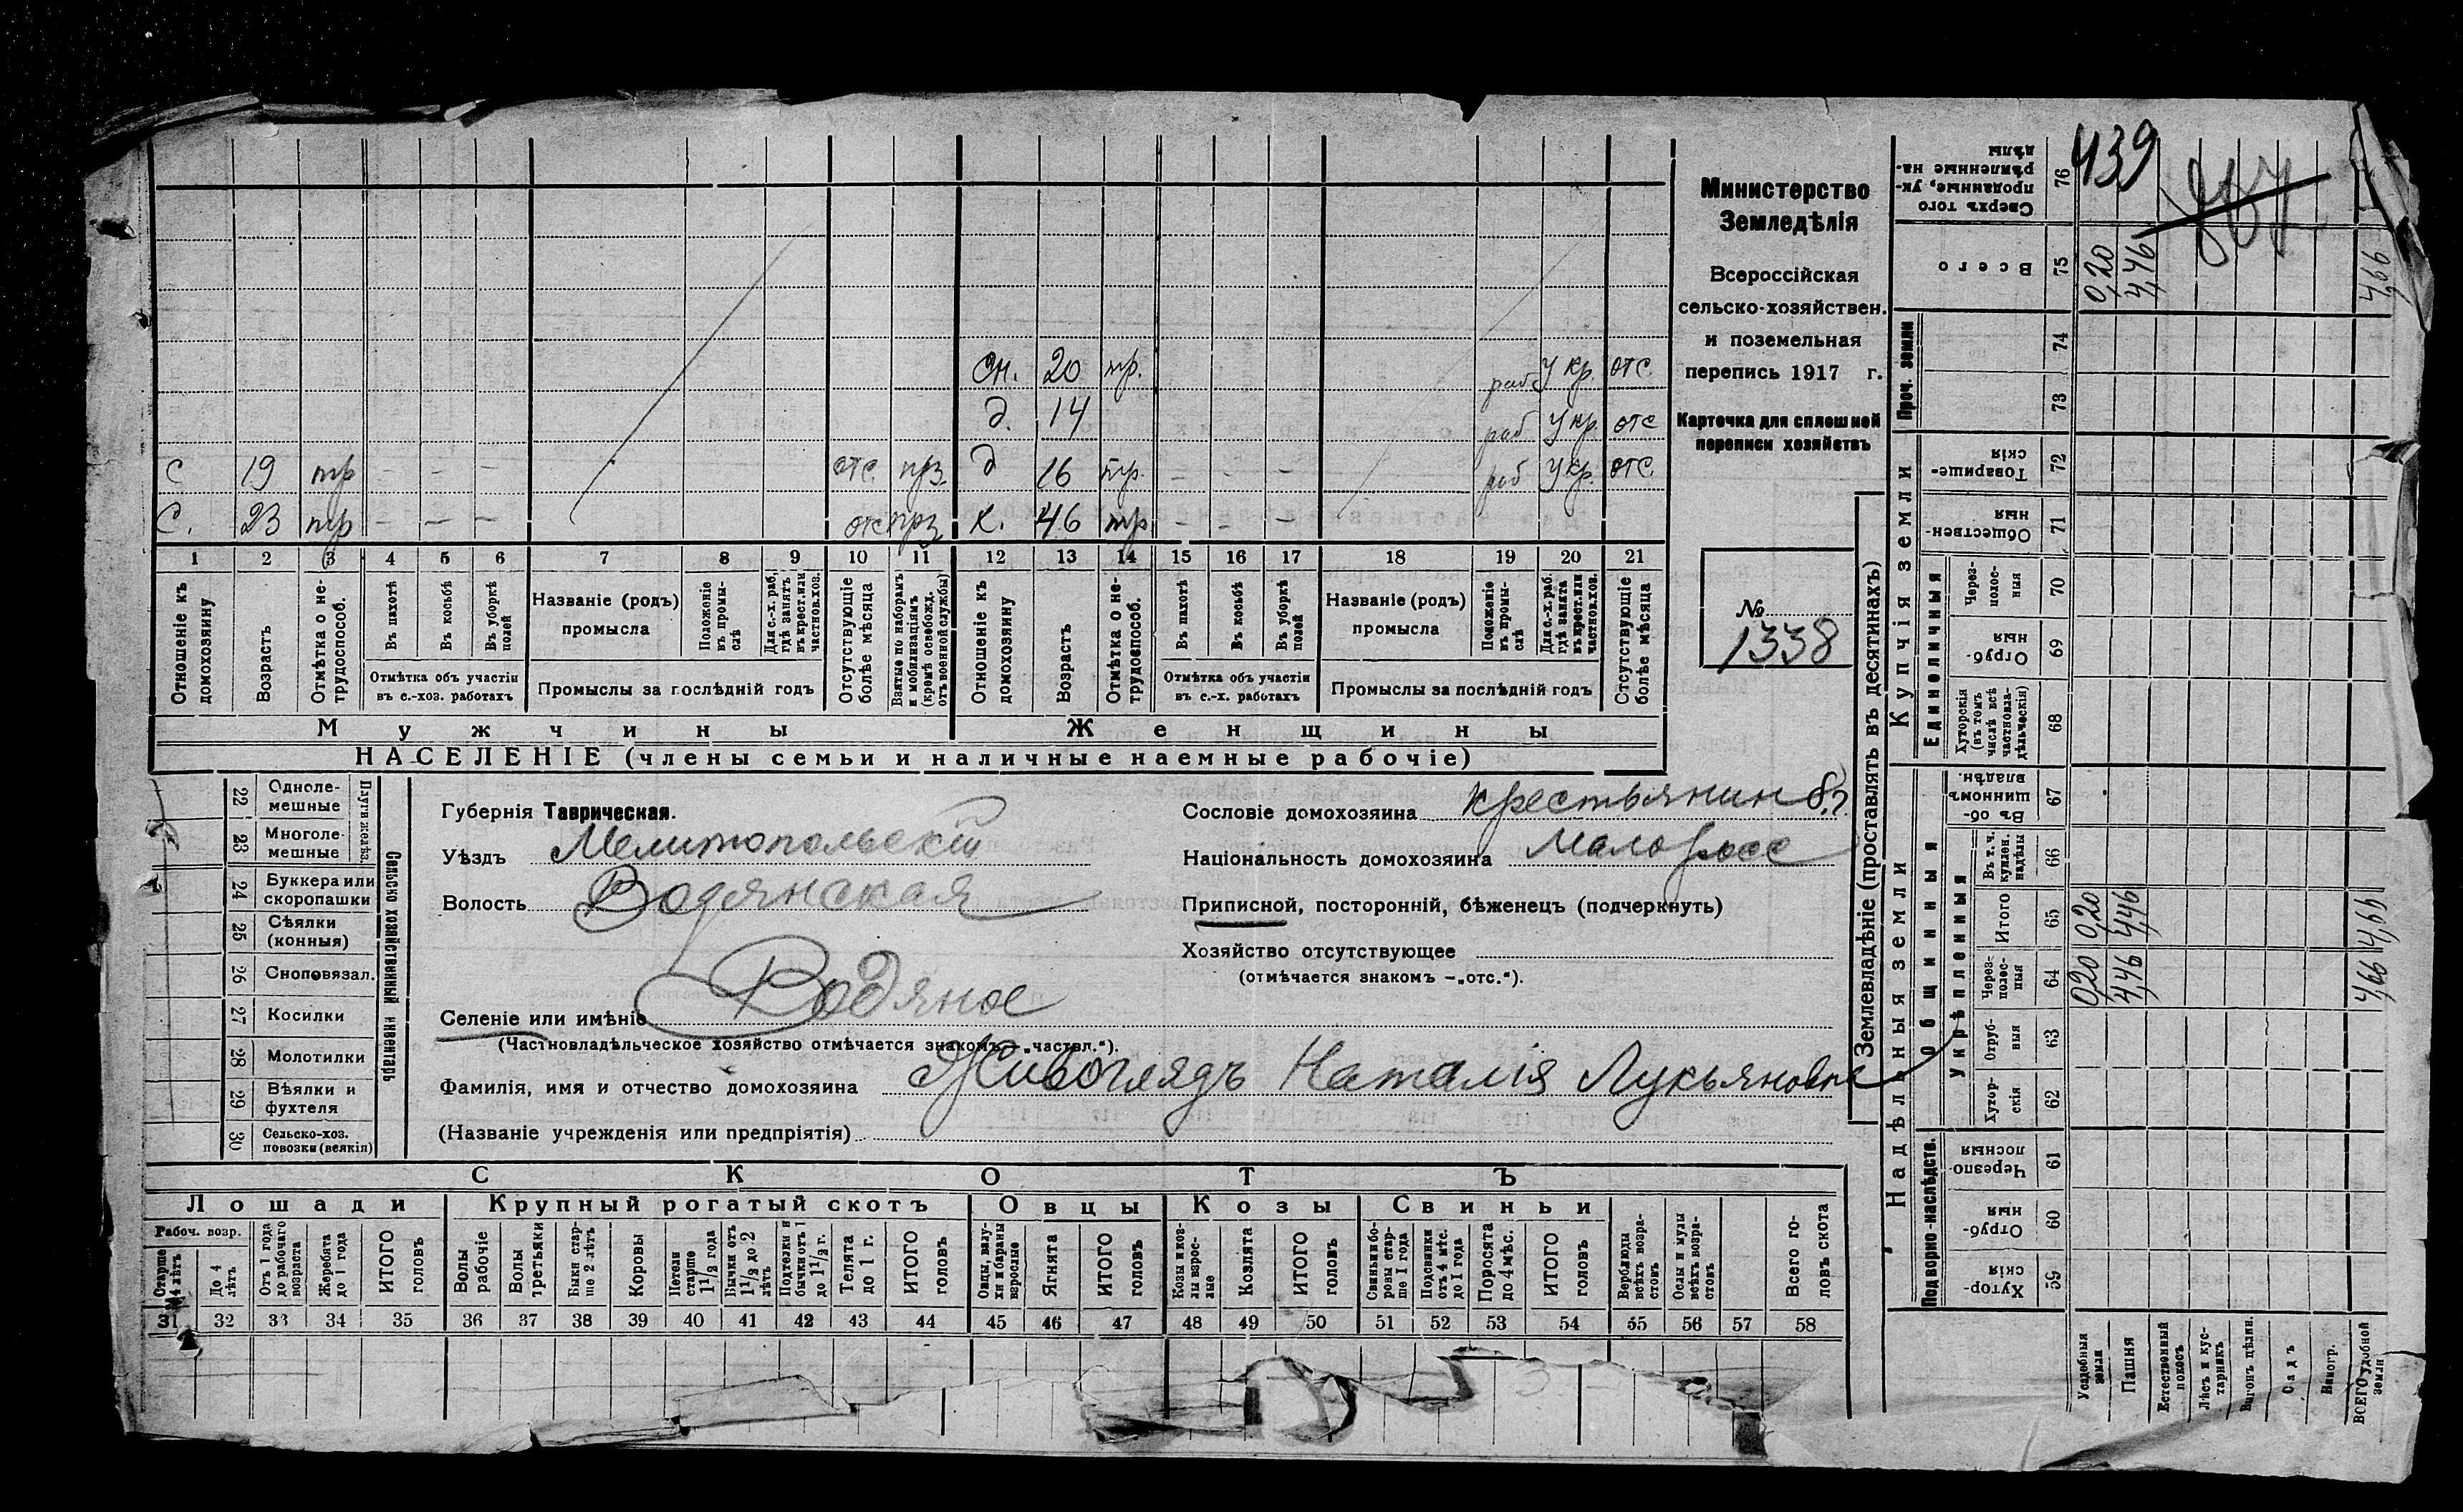 Министерство
Земледѣлія
Всероссійская
сельско-хозяйствен.
и поземельная
перепись 1917 г.
Карточка для сплошной
переписи хозяйствъ
№
1338
439
сн. 20 пр. раб. у кр. отс.
д. 14 раб у кр. отс
с 19 пр - - - отс. прз. д 16 пр. - - - раб у кр. отс.
с. 23 пр - - - отс прз х. 46 пр. - - -
1 2 3 4 5 6 7 8 9 10 11 12 13 14 15 16 17 18 19 20 21
Отношеніе къ домохозяину
Возрастъ
Отмѣтка о не-трудоспособ.
Въ пахотѣ
Въ косьбѣ
Въ уборкѣ полей
Отмѣтка объ участіи въ с.-хоз. работахъ
Названіе (родъ) промысла
Положеніе въ промы-слѣ
Для с.-х. раб. гдѣ занятъ въ крест. или частнов. хоз.
Промыслы за послѣдній годъ
Отсутствующіе болѣе мѣсяца
Взятые по наборамъ и мобилизаціямъ (кромѣ освобожд. отъ военной службы)
Отношеніе къ домохозяину
Возрастъ
Отмѣтка о не-трудоспособ.
Въ пахотѣ
Въ косьбѣ
Въ уборкѣ полей
Отмѣтка объ участіи въ с.-х. работахъ
Названіе (родъ) промысла
Положеніе въ промы-слѣ
Для с.-х. раб. гдѣ занята въ крест. или частнов. хоз.
Промыслы за послѣдній годъ
Отсутствующіе болѣе мѣсяца
Мужчины Женщины
НАСЕЛЕНІЕ (члены семьи и наличные наемные рабочіе)
22 Одноле-мешные
23 Многоле-мешные
Плуги желѣз.
24 Буккера или скоропашки
25 Сѣялки (конныя)
26 Сноповязал.
27 Косилки
28 Молотилки
29 Вѣялки и фухтеля
30 Сельско-хоз. повозки (всякія)
Сельско хозяйственный инвентарь
Губернія Таврическая.
Уѣздъ Мелитопольскій
Волость Водянская
Селеніе или имѣніе Водяное
(Частновладѣльческое хозяйство отмѣчается знакомъ — „частвл.“).
Фамилія, имя и отчество домохозяина Живоглядъ Наталія Лукьяновна
(Названіе учрежденія или предпріятія)
Сословіе домохозяина крестьянин
Національность домохозяина Малоросс
Приписной, посторонній, бѣженецъ (подчеркнуть)
Хозяйство отсутствующее
(отмѣчается знакомъ —„отс.“).
СКОТЪ
Лошади Крупный рогатый скотъ Овцы Козы Свиньи
Рабоч. возр.
Старше 4 лѣтъ
До 4 лѣтъ
Отъ 1 года до рабочаго возраста
Жеребята до 1 года
ИТОГО головъ
Волы рабочіе
Волы третьяки
Быки стар-ше 2 лѣтъ
Коровы
Нетели старше 1½ года
Бычки отъ 1½ до 2 лѣтъ
Подтелки и бычки отъ 1 до 1½ г.
Телята до 1 г.
ИТОГО головъ
Овцы, валу-хи и бараны взрослые
Ягнята
ИТОГО головъ
Козы и коз-лы взрос-лые
Козлята
ИТОГО головъ
Свиньи и бо-ровы стар-ше 1 года
Подсвинки отъ 4 мѣс. до 1 года
Поросята до 4 мѣс.
ИТОГО головъ
Верблюды всѣхъ возра-стовъ
Ослы и мулы всѣхъ возра-стовъ
Всего го-ловъ скота
31 32 33 34 35 36 37 38 39 40 41 42 43 44 45 46 47 48 49 50 51 52 53 54 55 56 57 58
Землевладѣніе (проставлять въ десятинахъ)
Надѣльныя земли
Купчія земли
Подворно-наслѣдств.
Общинныя
Укрѣпленныя
Единоличныя
Проч. земли
59 Хутор-скія
60 Отруб-ныя
61 Черезпо-лосныя
62 Хутор-скія
63 Отруб-ныя
64 Через-полос-ныя 0,20 4,46 4,66
65 Итого 0,20 4,46 4,66
66 Въ т. ч. куплен. надѣлы
67 Въ об-щинномъ владѣн.
68 Хуторскія (въ томъ числѣ всѣ частновла-дѣльческія)
69 Отруб-ныя
70 Через-полос-ныя
71 Обществен-ныя
72 Товарище-скія
73
74
75 Всего 0,20 4,46 4,66
76 Сверхъ того проданные, ук-рѣпленные на-дѣлы
Усадебныя земли
Пашня
Естественный покосъ
Лѣсъ и кус-тарникъ
Выгонъ цѣлин.
Садъ
Виногр.
ВСЕГО удобной земли